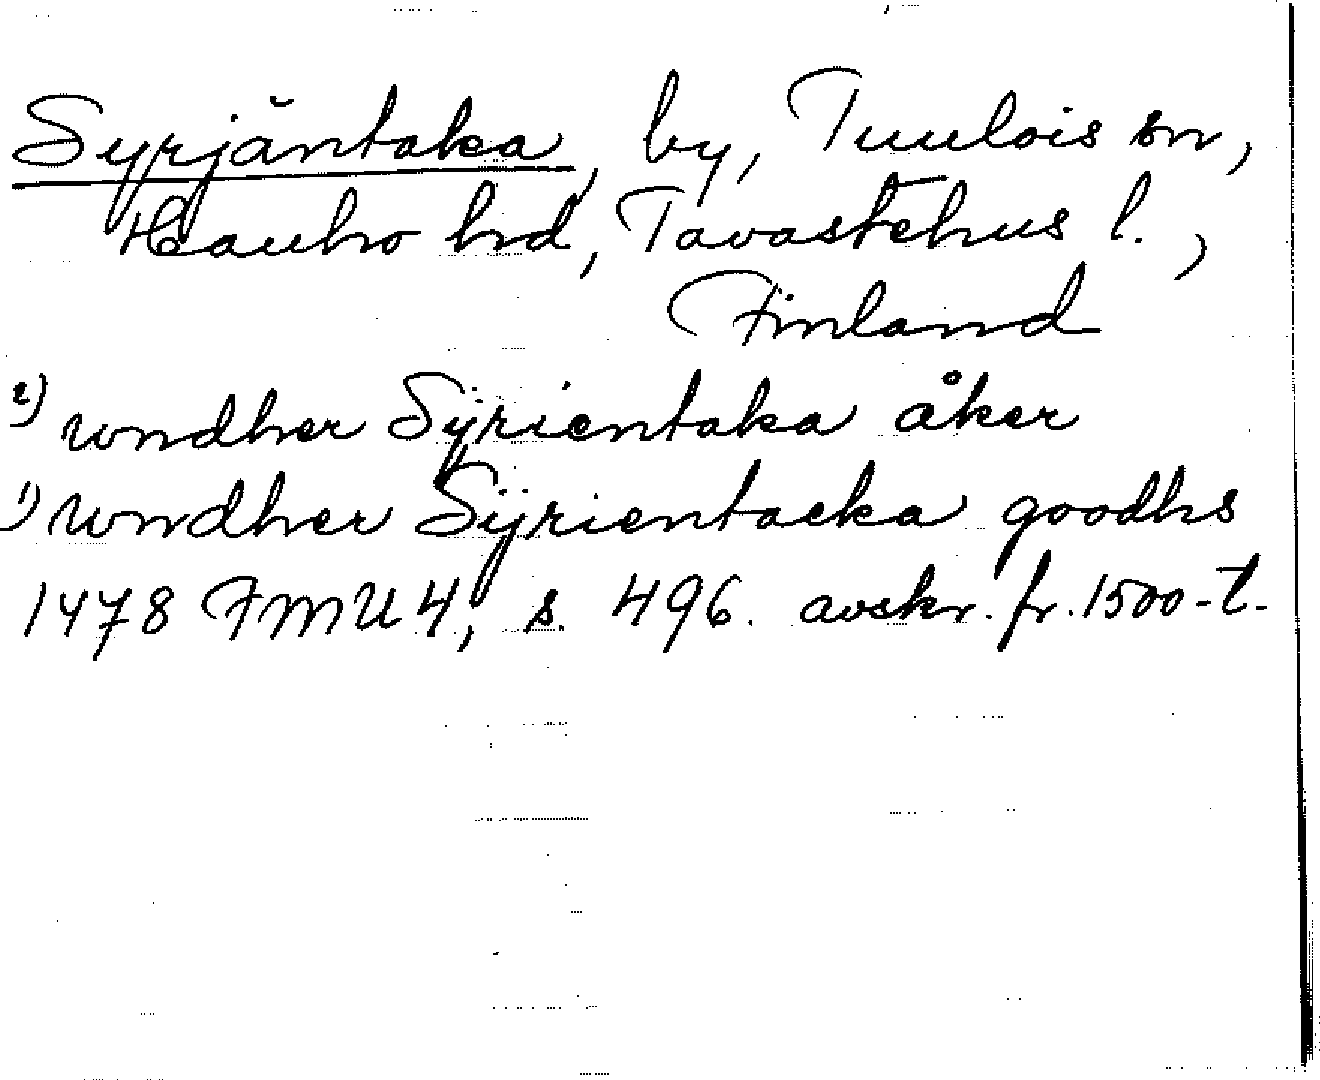 Syrjäntaka, by, Tuulois sn,
Hauho hrd, Tavastehus l.,
Finland
2) wndher Syrientaka åker
1) Wndher Sÿrientacka goodhs
1478 FMU 4, s. 496. avskr. fr. 1500-t.